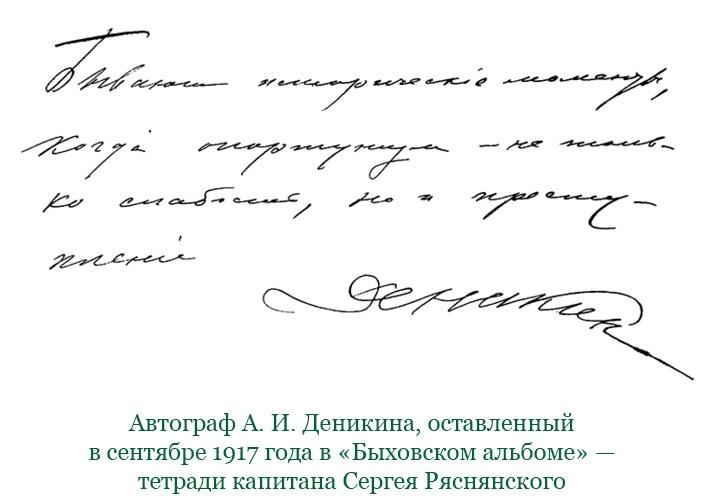 Бывают историческіе моменты,
когда опортунизм – не толь-
ко слабость, но и престу-
пленіе
Деникин
Автограф А. И. Деникина, оставленный
в сентябре 1917 года в «Быховском альбоме» —
тетради капитана Сергея Ряснянского